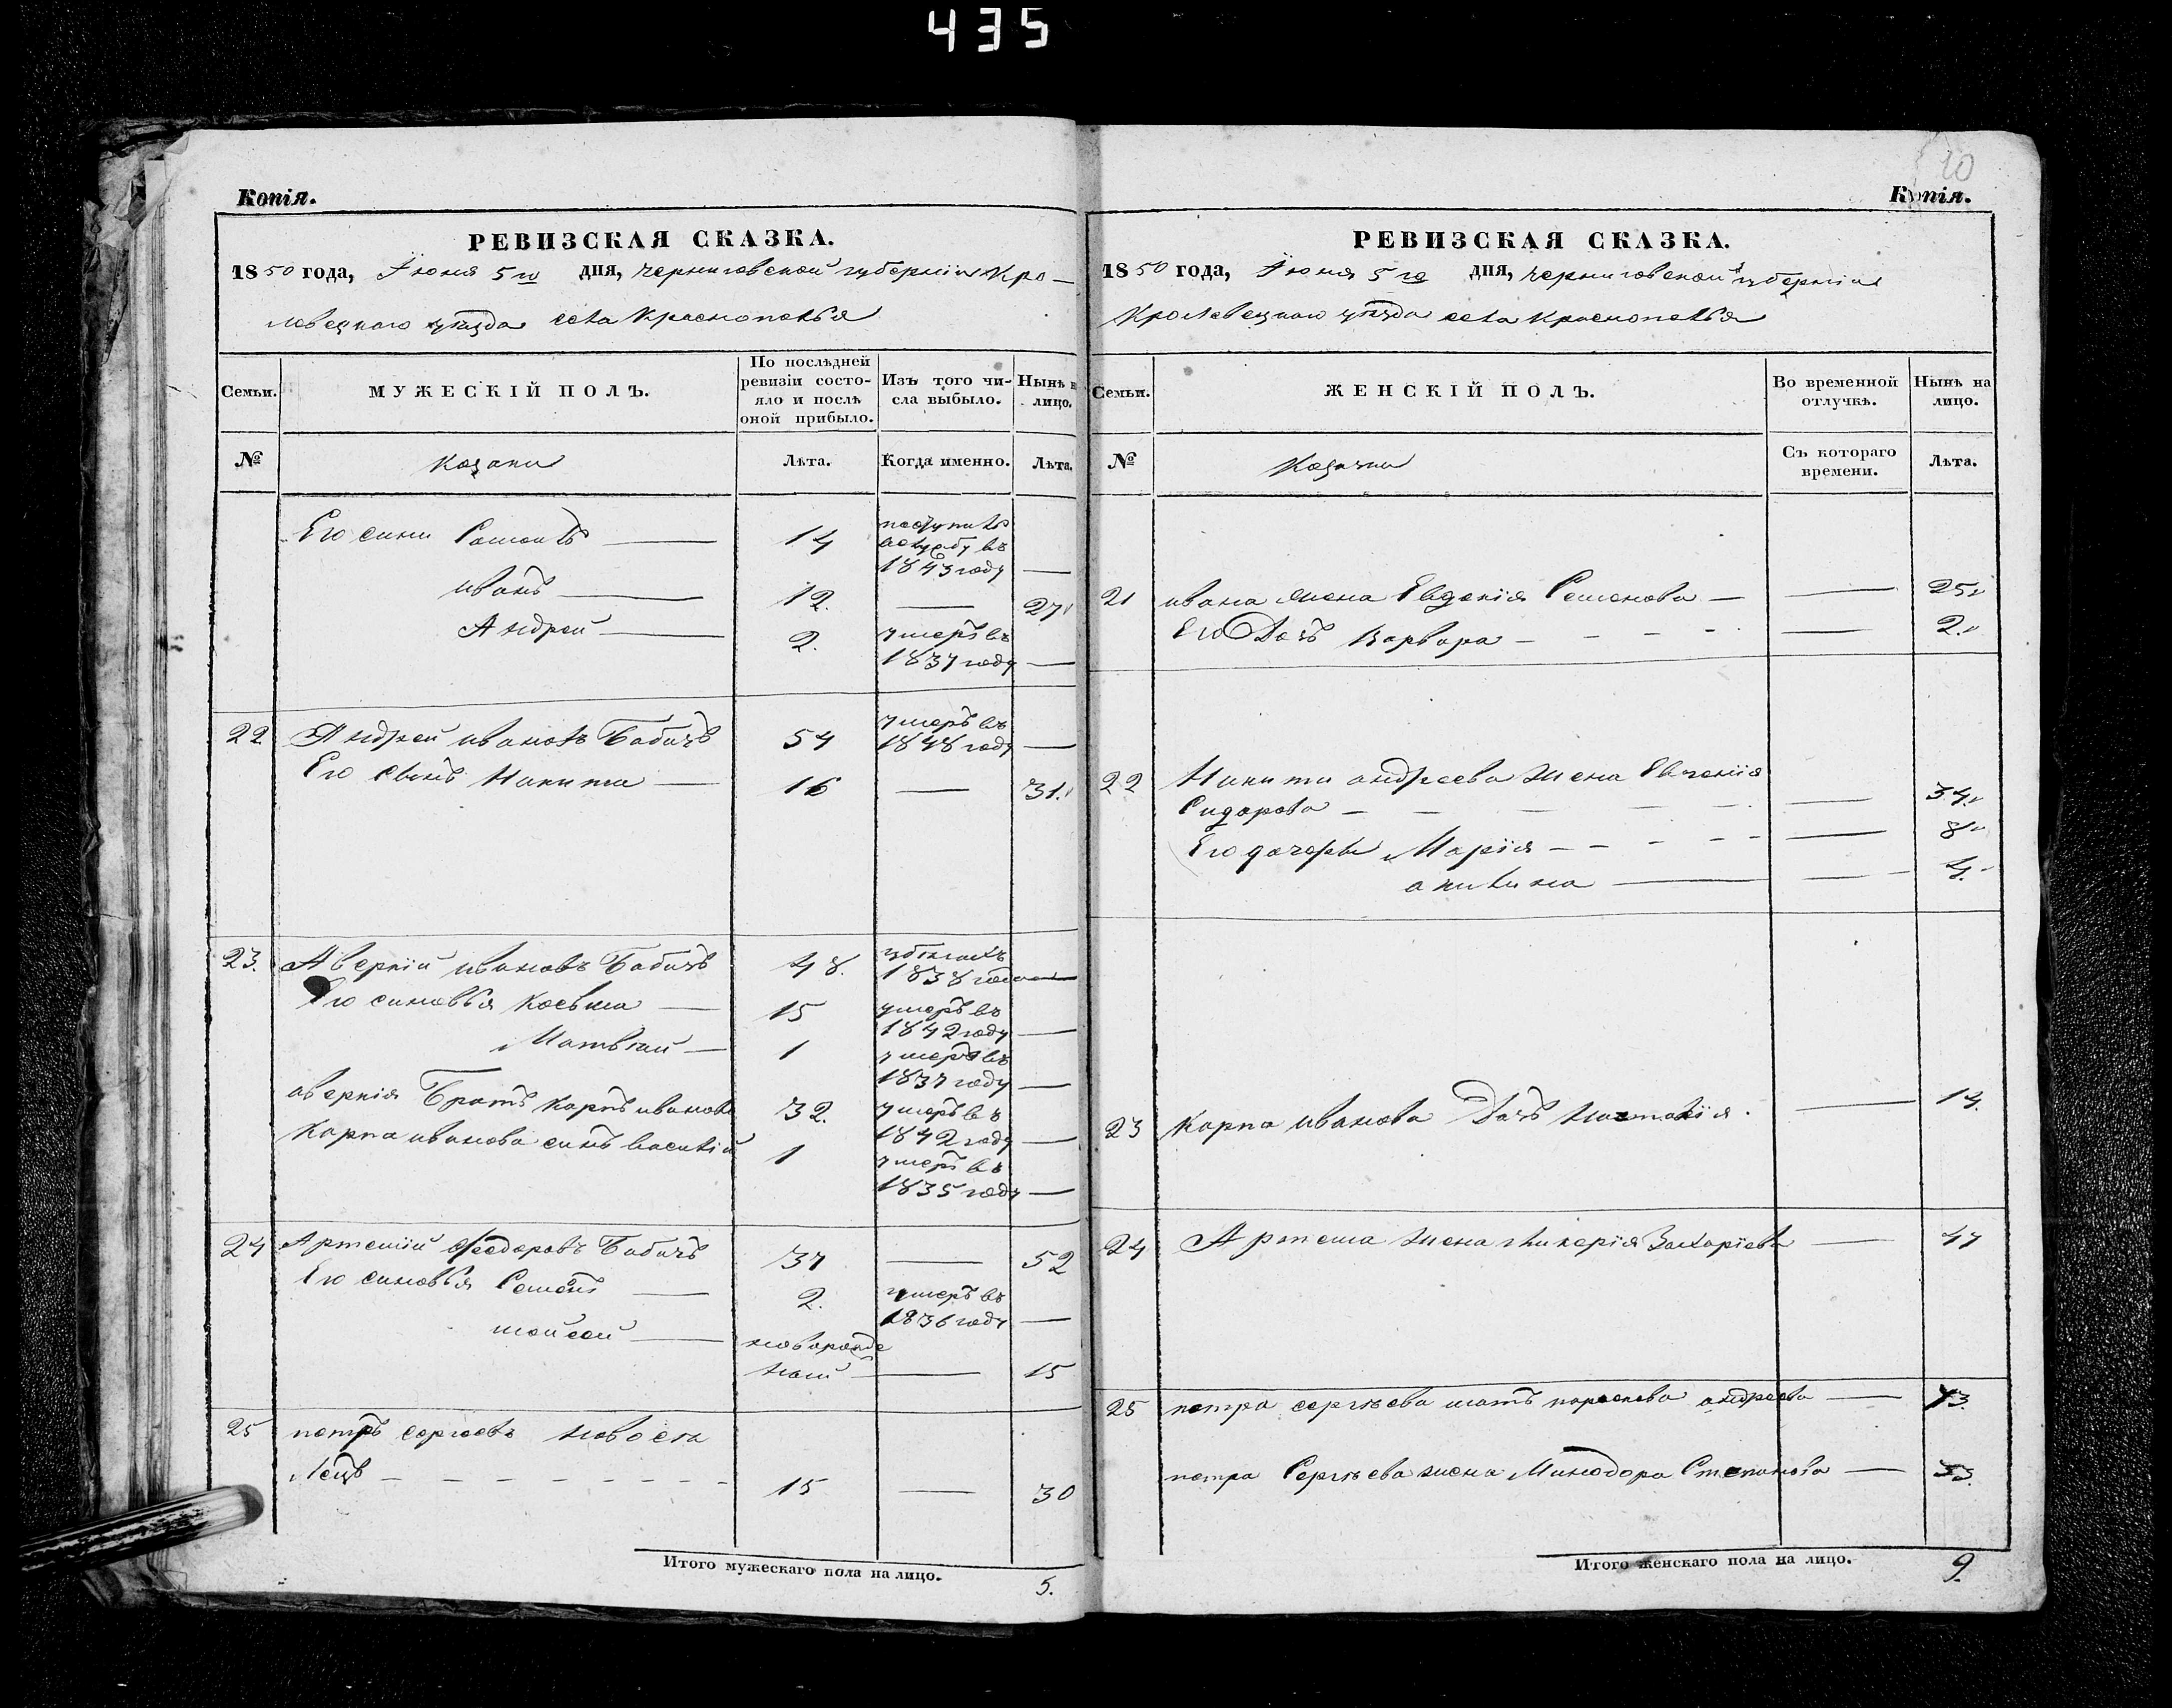 435
Копія.
РЕВИЗСКАЯ СКАЗКА.
1850 года, Іюня 5го дня, черниговской губерніи Кро-
левецкаго уѣзда села Краснополья
Семьи.
МУЖЕСКІЙ ПОЛЪ.
По послѣдней ревизіи состояло и послѣ оной прибыло.
Изъ того числа выбыло.
Нынѣ н лицо.
№
Козаки
Лѣта.
Когда именно.
Лѣта.
Его сини Самоилъ — 14 поступилъ
вслужбу въ
1843 году —
иванъ — 12. — 27
Андрей — 2. умеръ въ
1837 году —
22 Андрей ивановъ Бабичъ 54 умеръ въ
1848 году —
Его Сынъ Никита — 16 — 31.
23. Аверкій ивановъ Бабичъ 48.
1838 года —
Его синовья Косьма — 15 умеръ въ
1842 году —
Матвѣй — 1 умеръ въ
1837 году —
аверкія Братъ Карпъ ивановъ 32. умеръ въ
1842 году —
Карпа иванова синъ василій 1 умеръ въ
1835 году —
24 Артемій Феодоровъ Бабичъ 37 — 52
Его синовья Семенъ — 2. умеръ въ
1836 году —
мойсей — новорожде
ный — — 15
25 петръ сергеевъ новосе
лецъ - - - - - - - - 15 — 30
Итого мужескаго пола на лицо. 5.
10
Копія.
РЕВИЗСКАЯ СКАЗКА.
1850 года, Іюня 5го дня, черниговской губерніи
Кролевецкаго уѣзда села Краснополья
Семьи.
ЖЕНСКІЙ ПОЛЪ.
Во временной отлучкѣ.
Нынѣ на лицо.
№
Козачки
Съ котораго времени.
Лѣта.
21 ивана жена Евдокія Семенова — — 25
Его Дочъ Варвара - - - - — 2.
22 Никити андреева жена Евгенія
Сидорова - - - - - — 34.
Его дочеры Марія - - - - - — 8
акилина — — 4.
23 Карпа иванова Дочъ наталія. — 14.
24 Артема жена гликерія Захаріева — 47
25 петра сергѣева мать параскева андреева — 73.
петра Сергѣева жена Минодора Степанова — 33.
Итого женскаго пола на лицо. 9.